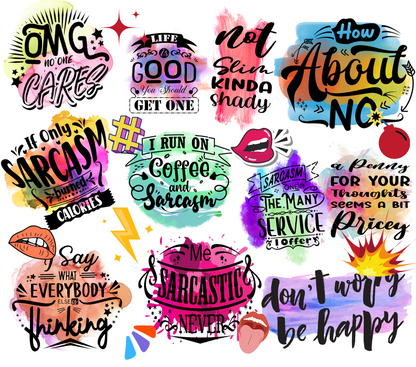 OMG
NO ONE
CARES
LIFE
IS
GOOD
You Should
GET ONE
not
Slim
KINDA
shady
How
About
NO
If Only
SARCASM
burned
CALORIES
I RUN ON
Coffee
and
Sarcasm
SARCASM
ONE OF
THE MANY
SERVICE
I offer
a Penny
FOR YOUR
Thoughts
SEEMS A BIT
Pricey
I Say
WHAT
EVERYBODY
ELSE IS
thinking
Me
SARCASTIC
NEVER
don't worry
be happy